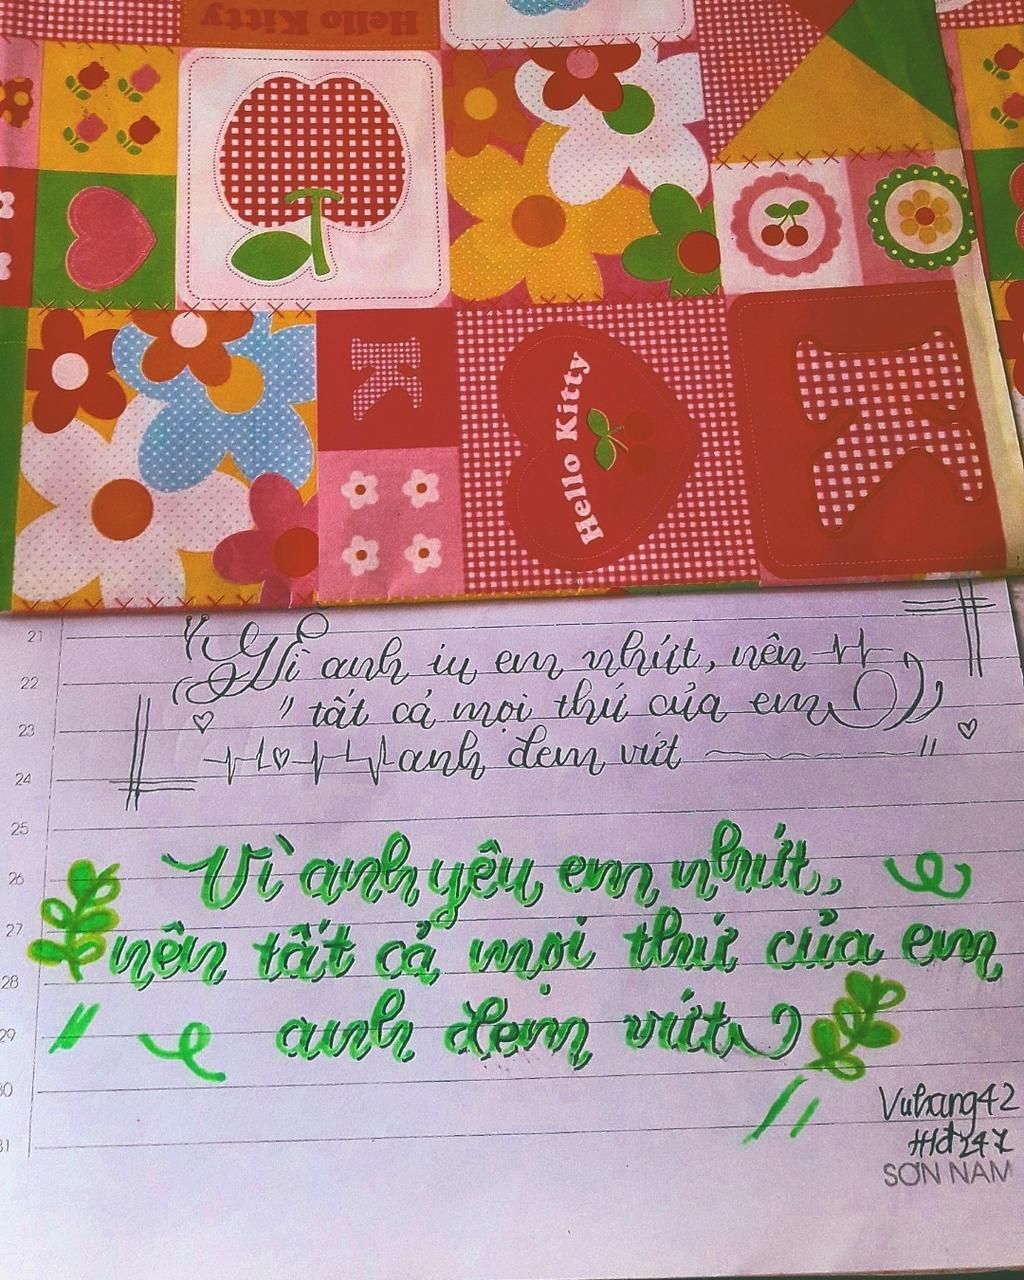 Hello Kitty
K
Hello Kitty
K
21
22
23
24
25
26
27
28
29
30
31
Vì anh iu em nhứt, nên
"tất cả mọi thứ của em
anh đem vứt"
Vì anh yêu em nhứt,
nên tất cả mọi thứ của em
" anh đem vứt
"
Vuhang42
#Hd247
SƠN NAM